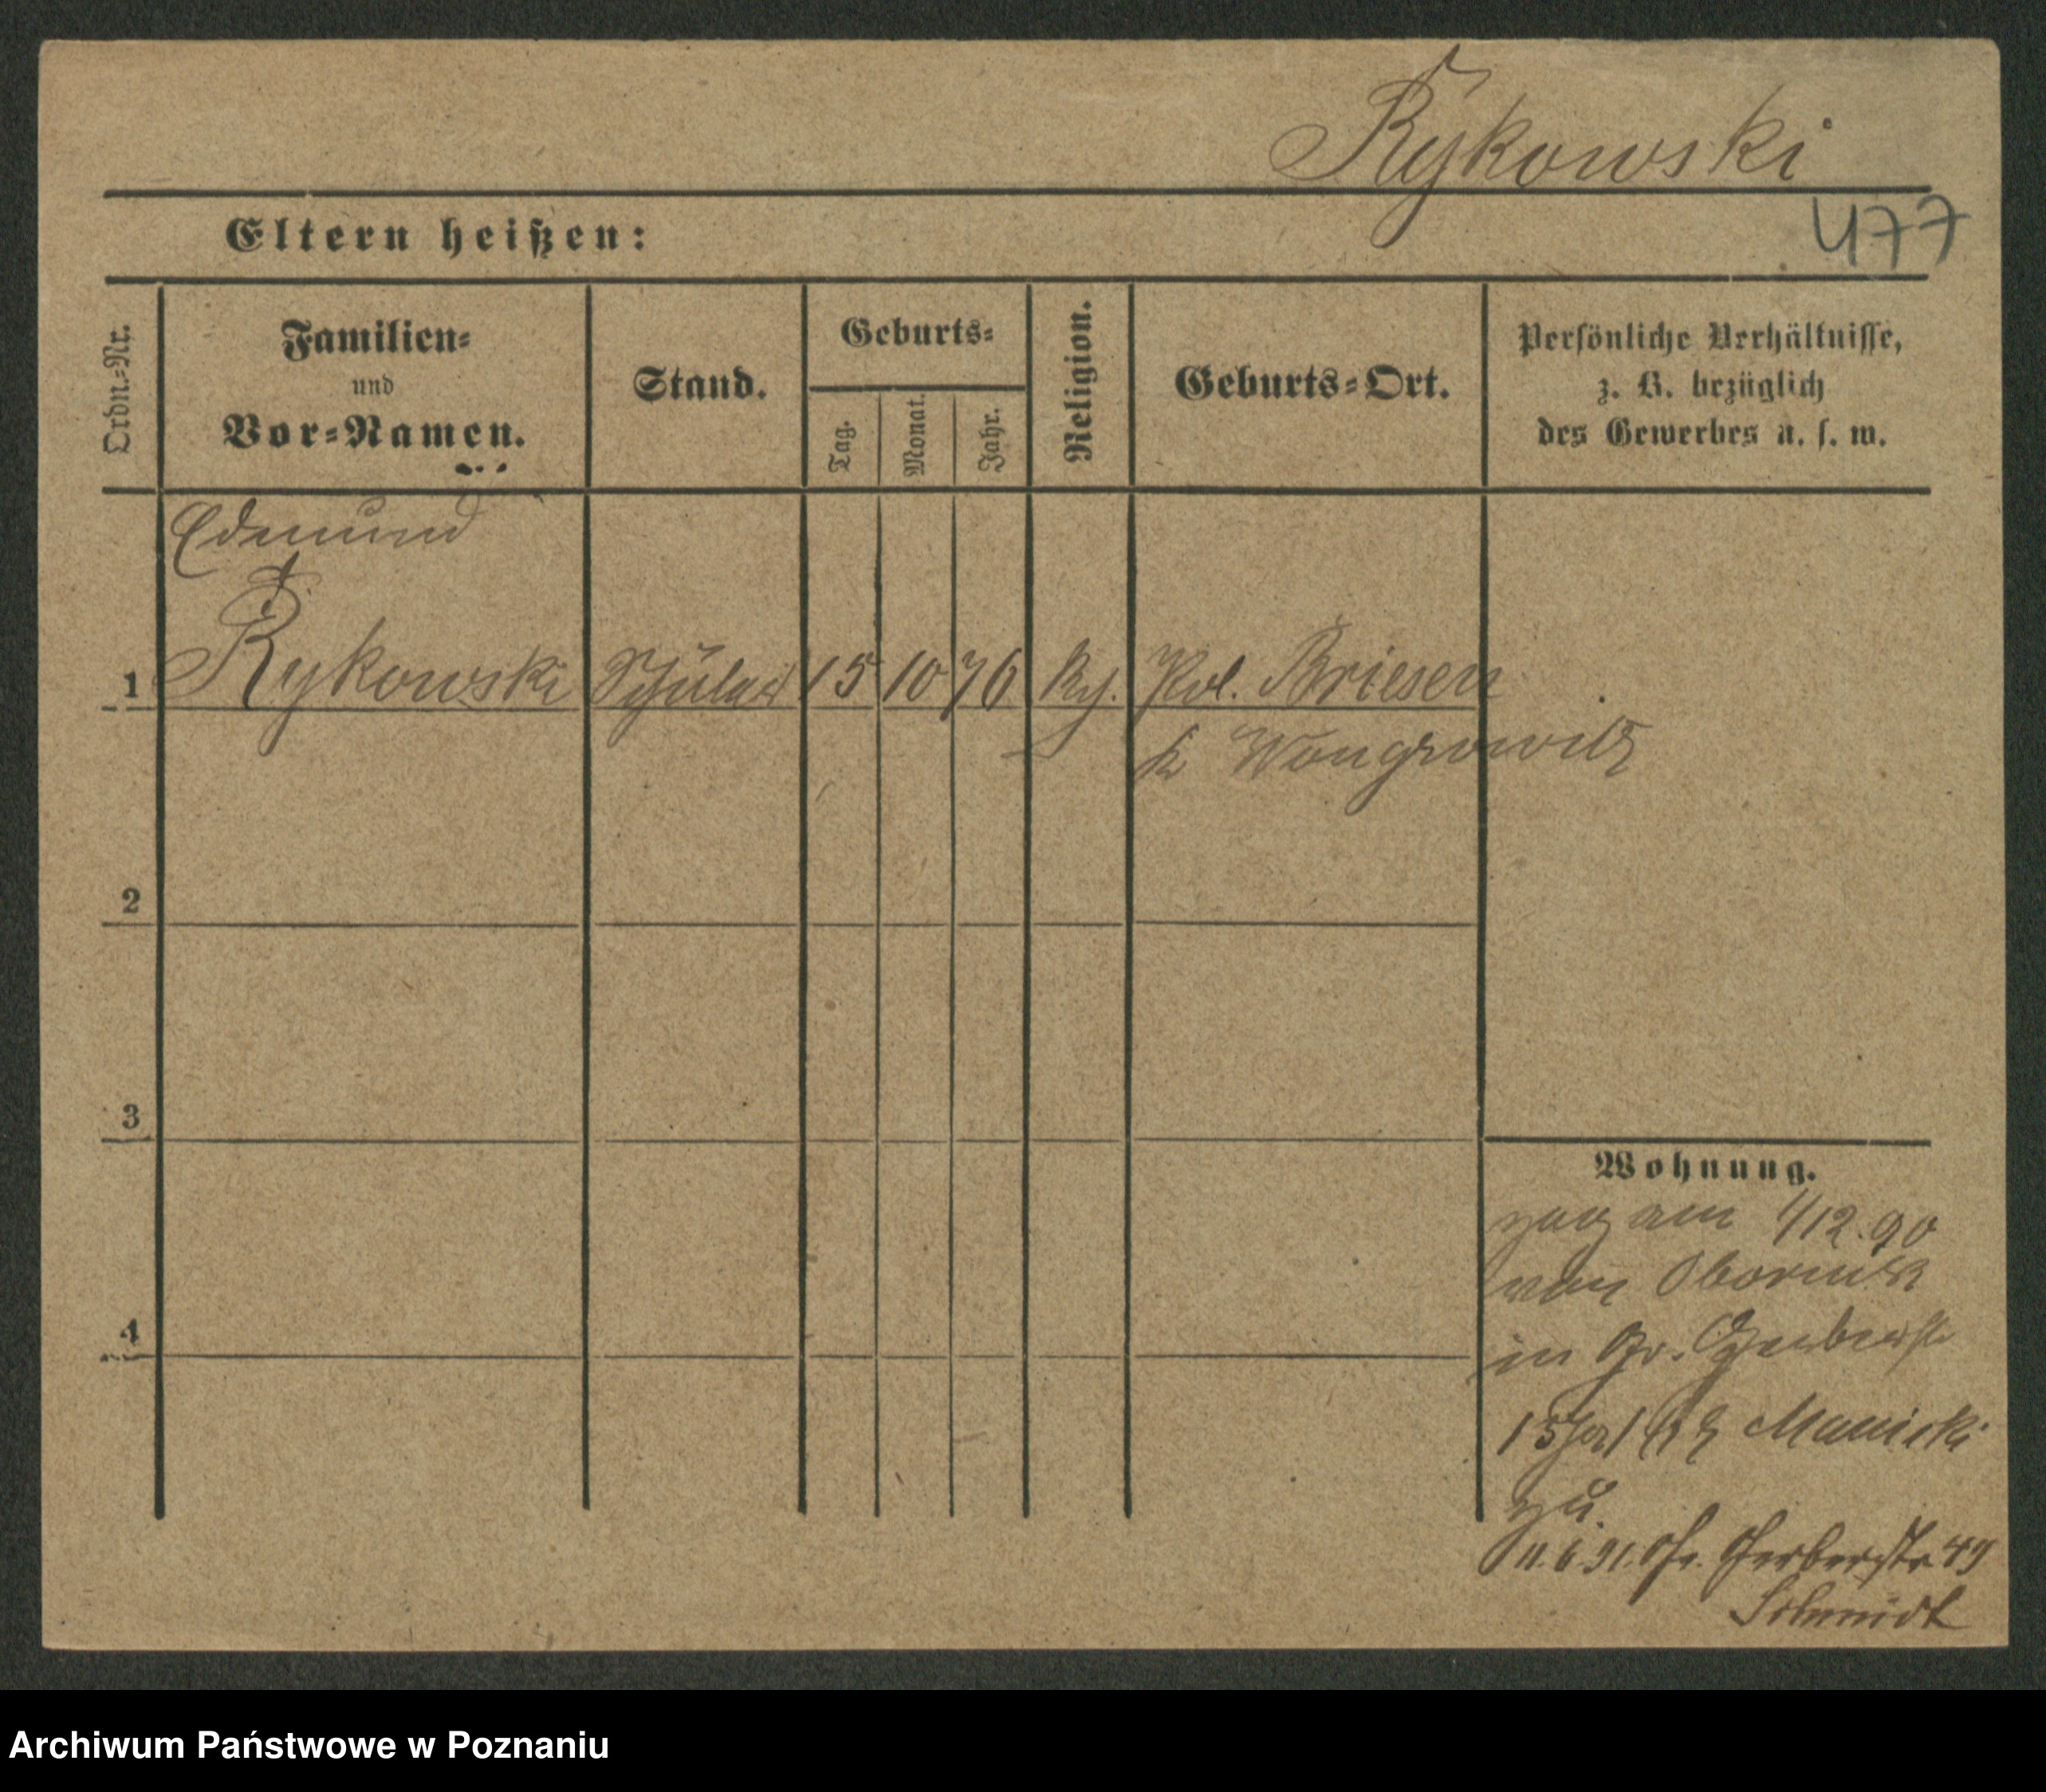 Rykowski
477
Eltern heißen:
Ordn.-Nr.
Familien-
und
Vor-Namen.
Stand.
Geburts-
Tag.
Monat.
Jahr.
Religion.
Geburts-Ort.
Persönliche Verhältnisse,
z. B. bezüglich
des Gewerbes u. s. w.
Edmund
1 Rykowski Schüler 15 10 76 Pol. Briesen
Wongrowitz
2
3
4
Wohnung.
zog am 1/12.90
von Obornik
in Gr. Gerberstr
15
zu.
11.6.91. Gr. Gerberstr 49
Schmidt
Archiwum Państwowe w Poznaniu